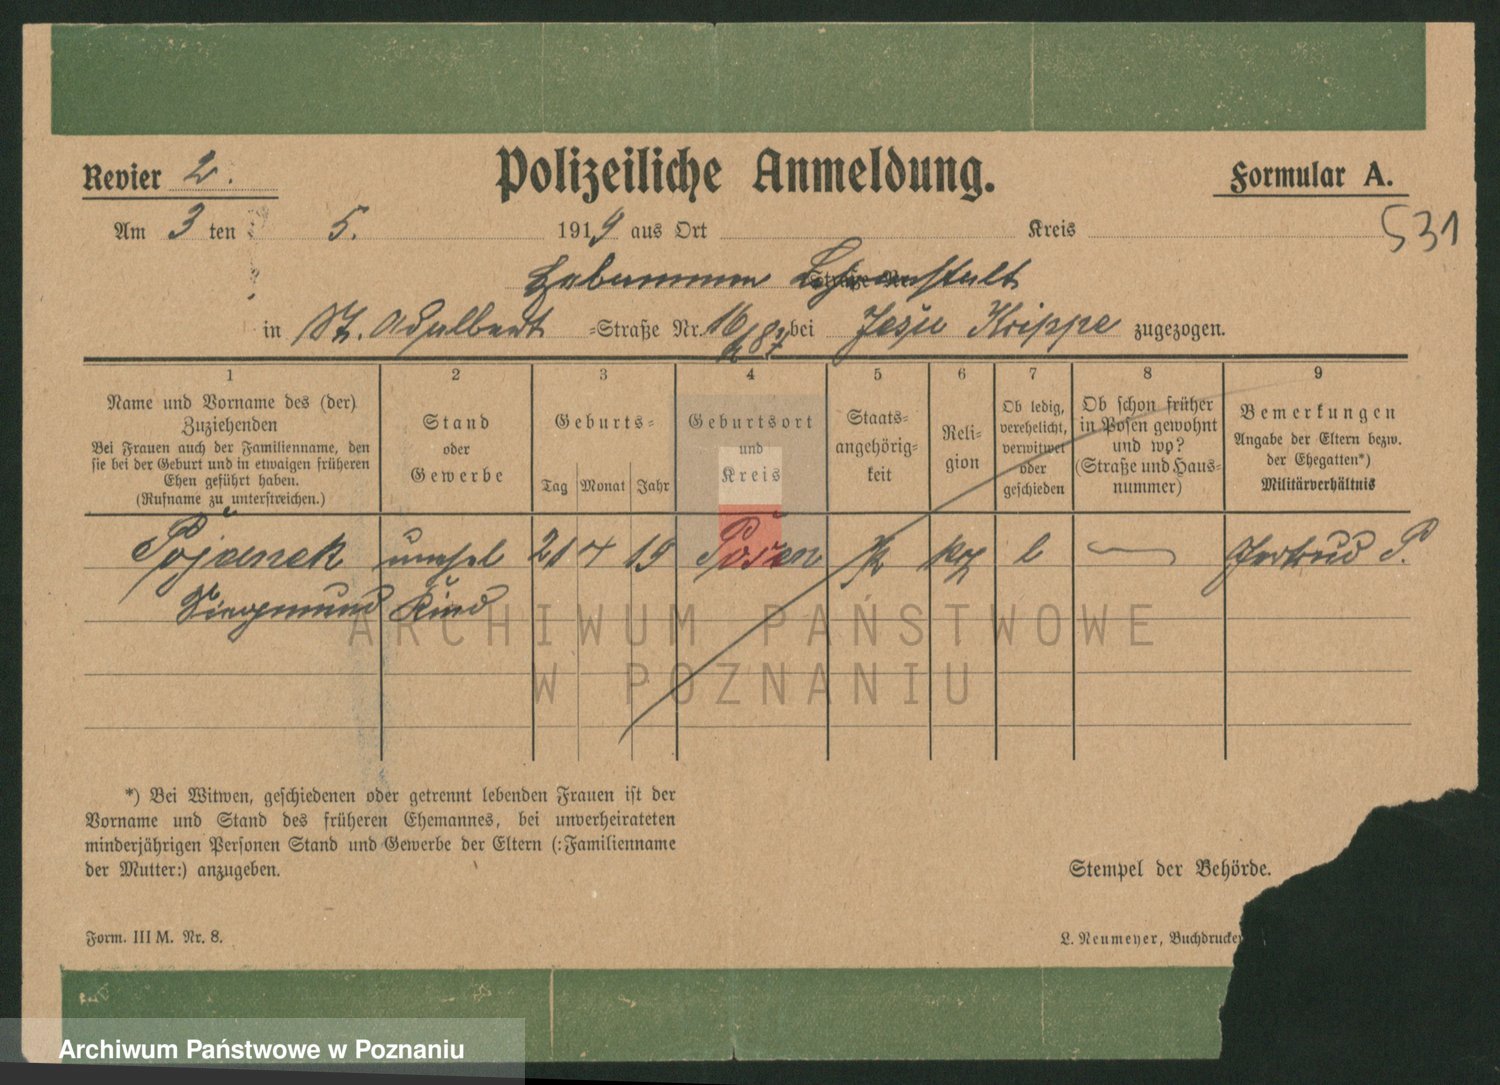 Revier 2. Polizeiliche Anmeldung. Formular A.
Am 3 ten 5. 1919 aus Ort Kreis 531
Hebammen Lehranstalt
in St. Adalbert -Straße Nr. 16/ bei Jesu Krippe zugezogen.
1 2 3 4 5 6 7 8 9
Name und Vorname des (der)
Zuziehenden
Bei Frauen auch der Familienname, den
sie bei der Geburt und in etwaigen früheren
Ehen geführt haben.
(Rufname zu unterstreichen.)
Stand
oder
Gewerbe
Geburts-
Tag Monat Jahr
Geburtsort
und
Kreis
Staats-
angehörig-
keit
Reli-
gion
Ob ledig,
verehelicht,
verwitwet
oder
geschieden
Ob schon früher
in Posen gewohnt
und wo?
(Straße und Haus-
nummer)
Bemerkungen
Angabe der Eltern bezw.
der Ehegatten*)
Militärverhältnis
Pojanek unehel 21 4 19 Posen Pr l Gertrud P.
Siegmund Kind
ARCHIWUM PAŃSTWOWE
W POZNANIU
*) Bei Witwen, geschiedenen oder getrennt lebenden Frauen ist der
Vorname und Stand des früheren Ehemannes, bei unverheirateten
minderjährigen Personen Stand und Gewerbe der Eltern (:Familienname
der Mutter:) anzugeben.
Stempel der Behörde.
Form. III M. Nr. 8.
L. Neumeyer, Buchdrucker
Archiwum Państwowe w Poznaniu